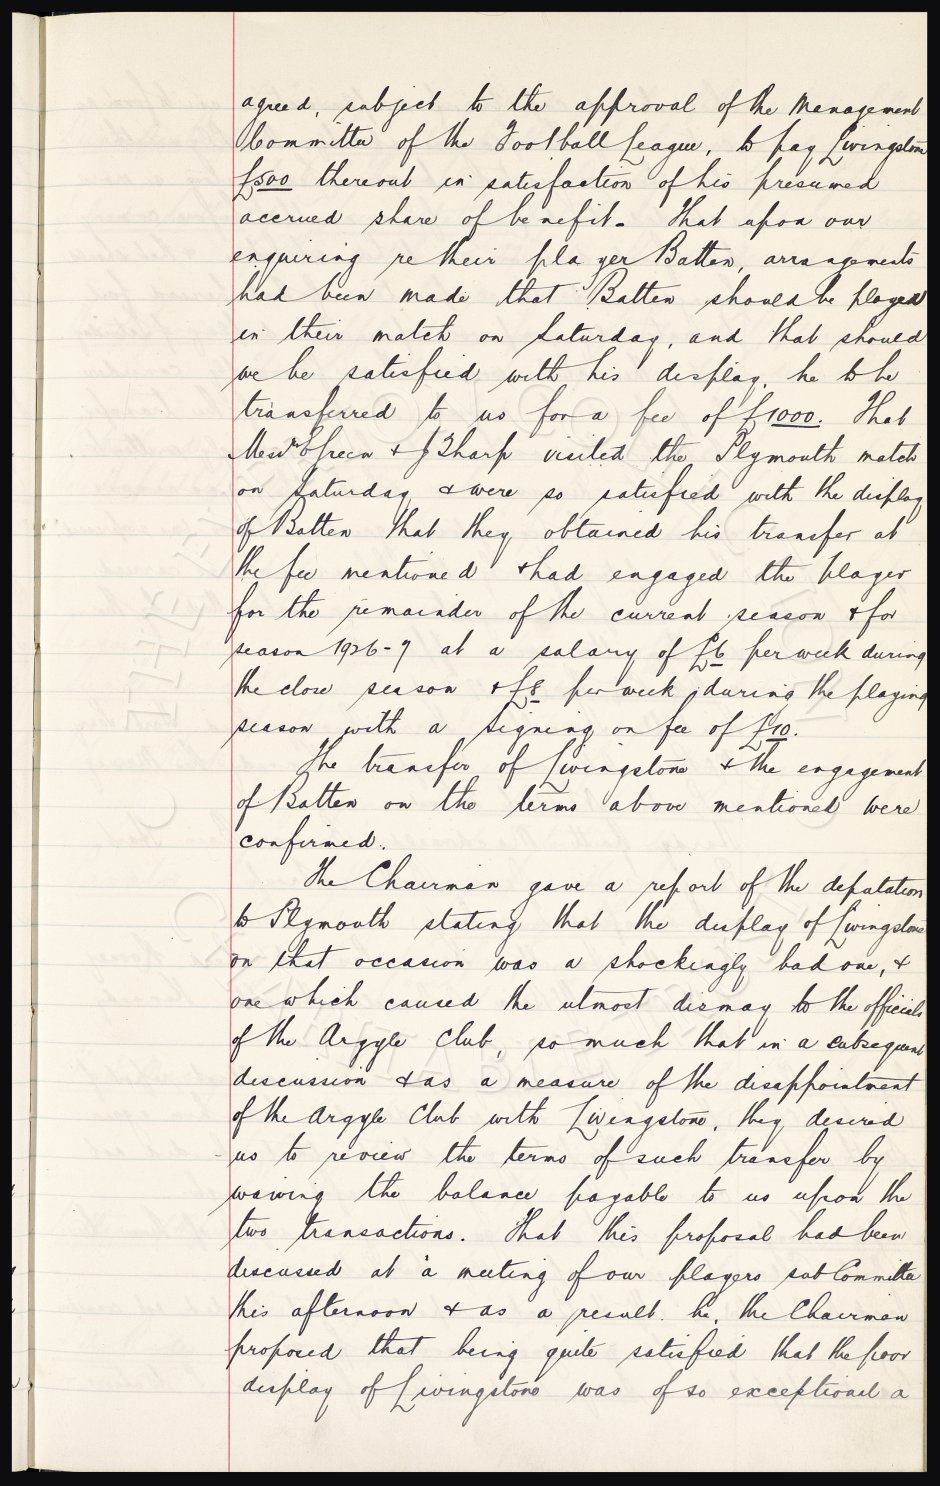 agreed, subject to the approval of the Management
Committee of the Football League, to pay Livingstone
£500 thereout in satisfaction of his presumed
accrued share of benefit. That upon our
enquiring re their player Batten, arrangements
had been made that Batten should be played
in their match on Saturday, and that should
we be satisfied with his display, he to be
transferred to us for a fee of £1000. That
Messrs Green & J Sharp visited the Plymouth match
on Saturday & were so satisfied with the display
of Batten that they obtained his transfer at
the fee mentioned & had engaged the player
for the remainder of the current season & for
season 1926-7 at a salary of £6 per week during
the close season & £8 per week during the playing
season with a signing on fee of £10.
The transfer of Livingstone & the engagement
of Batten on the terms above mentioned were
confirmed.
The Chairman gave a report of the deputation
to Plymouth stating that the display of Livingstone
on that occasion was a shockingly bad one, &
one which caused the utmost dismay to the officials
of the Argyle Club, so much that in a subsequent
discussion & as a measure of the disappointment
of the Argyle Club with Livingstone, they desired
us to review the terms of such transfer by
waiving the balance payable to us upon the
two transactions. That this proposal had been
discussed at a meeting of our players sub Committee
this afternoon & as a result he, the Chairman
proposed that being quite satisfied that the poor
display of Livingstone was of so exceptional a